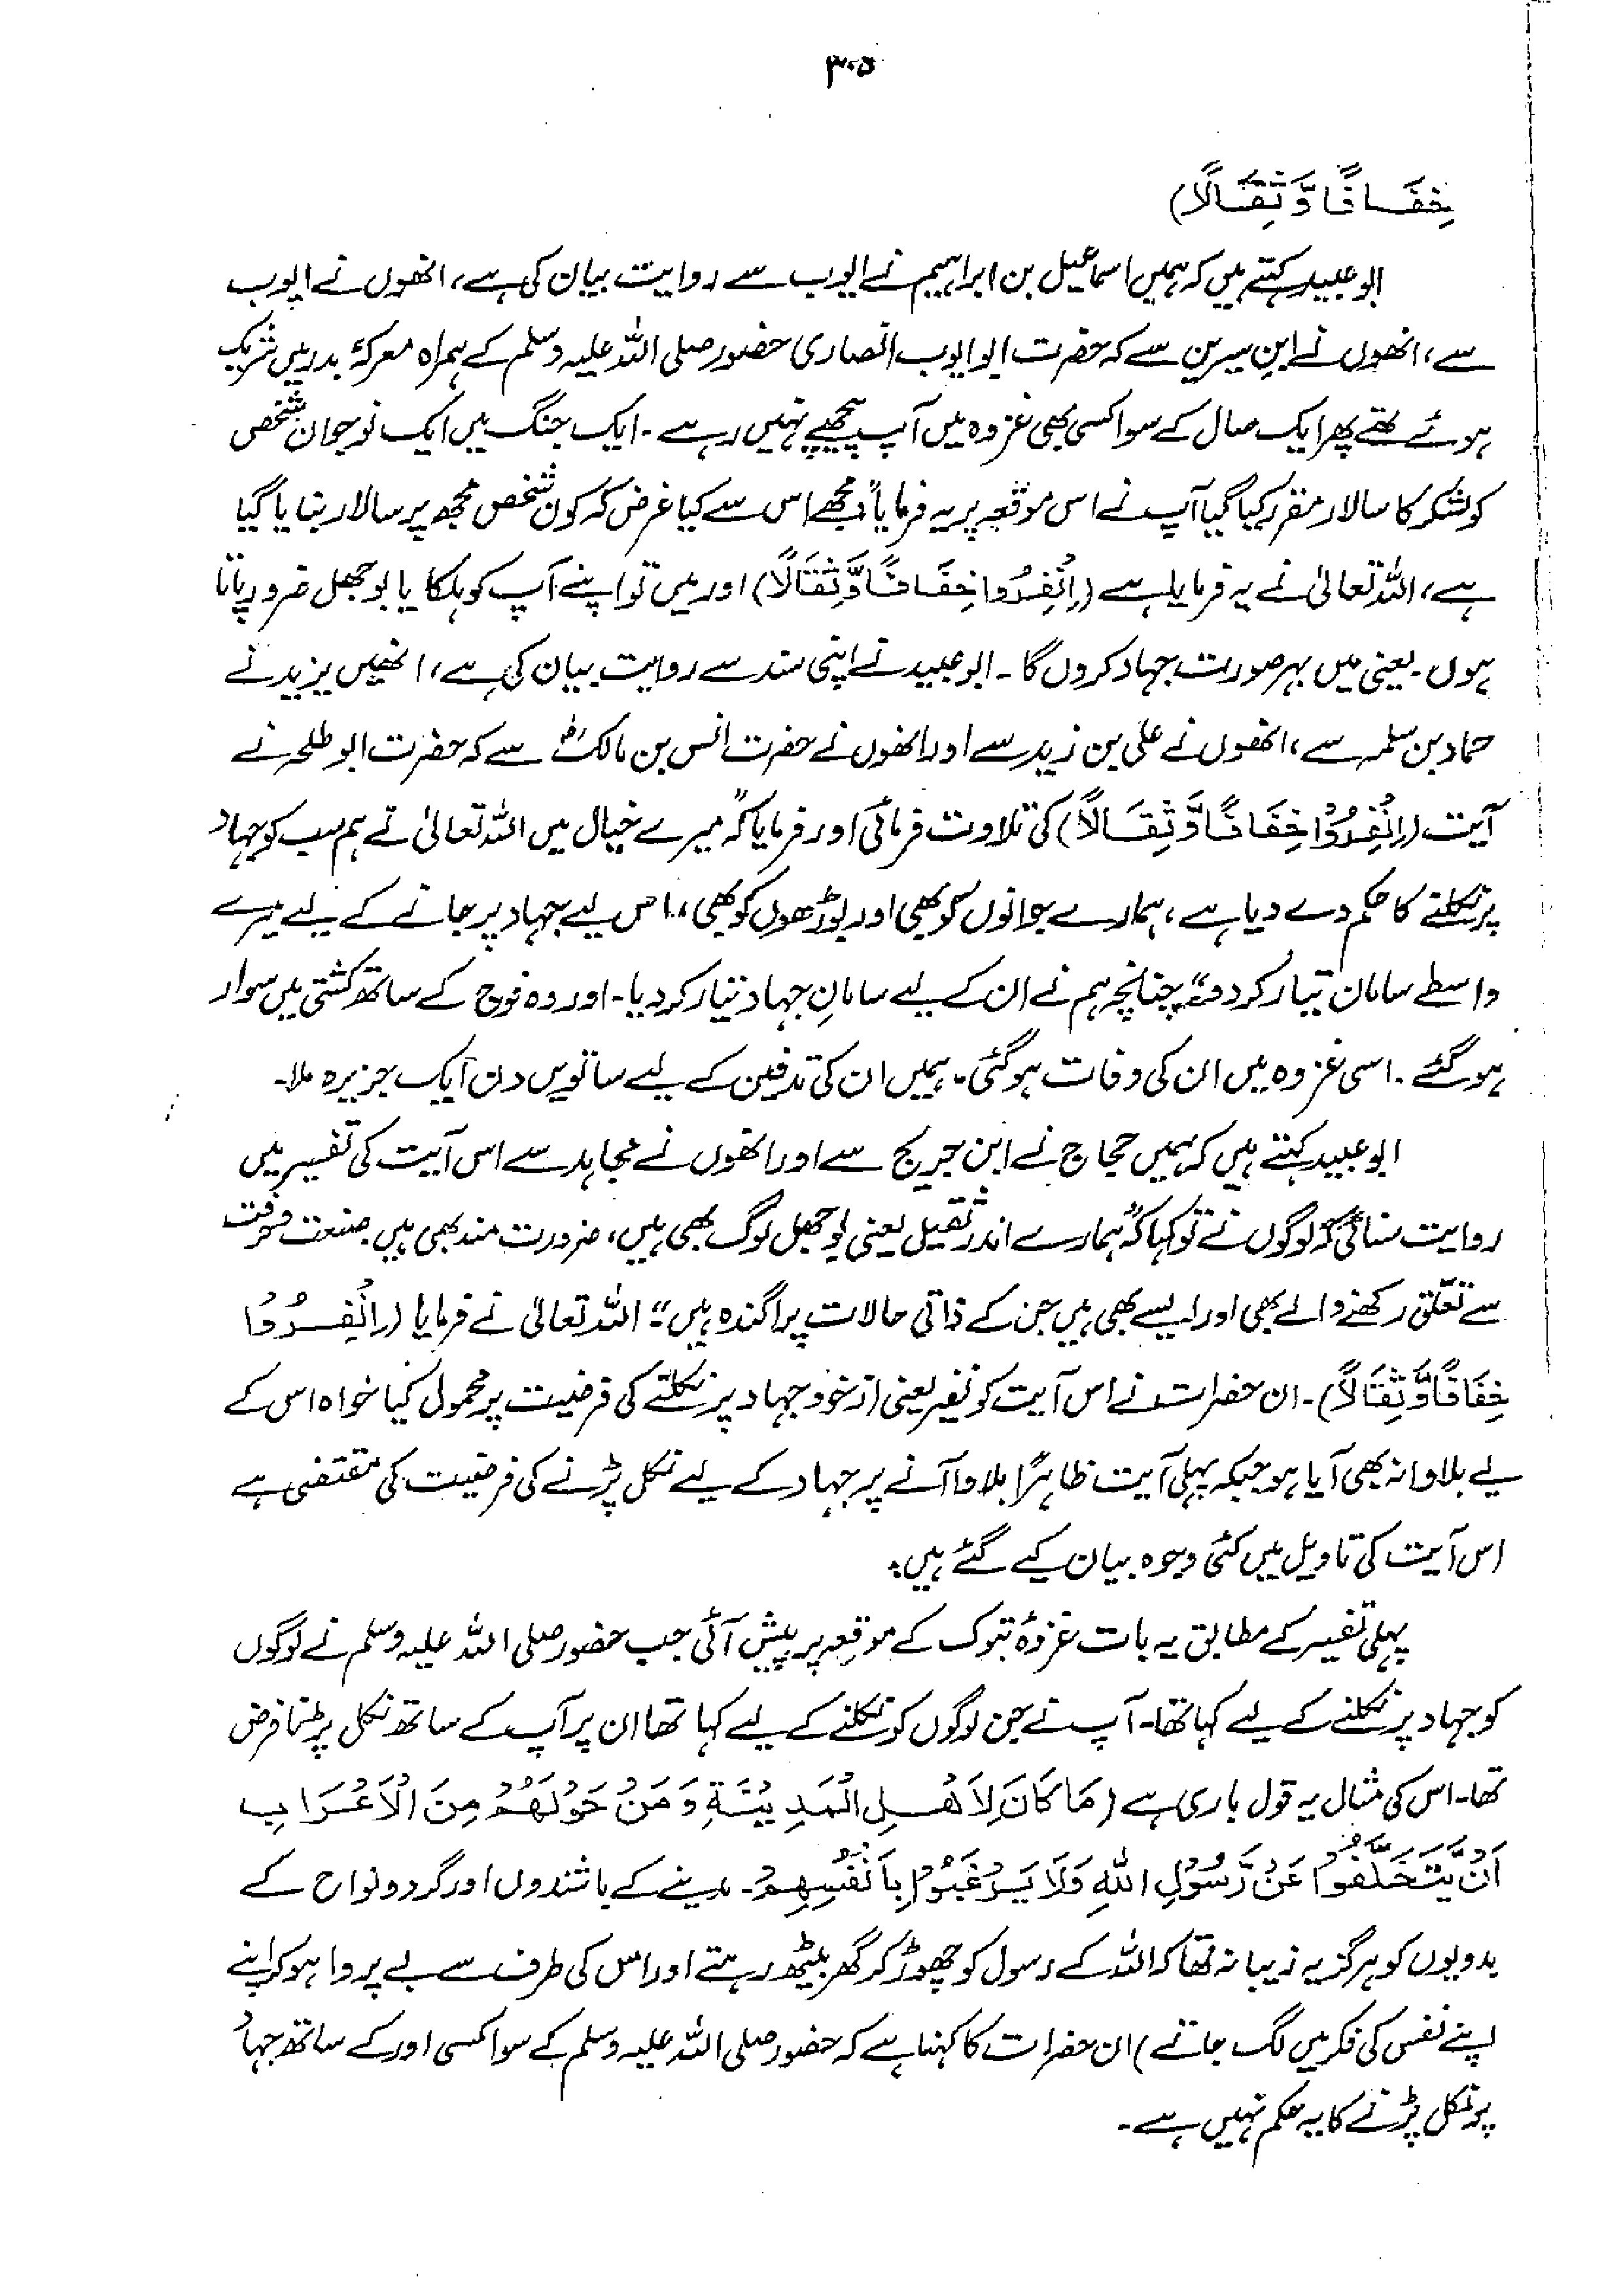 ۳۰۵
خِفَافًا وَّثِقَالًا)
ابوعبید کہتے ہیں کہ ہمیں اسماعیل بن ابراہیم نے ایوب سے روایت بیان کی ہے، انھوں نے ایوب
سے، انھوں نے ابن سیرین سے کہ حضرت ابو ایوب انصاری حضور صلی اللہ علیہ وسلم کے ہمراہ معرکۂ بدر میں شریک
ہوئے تھے پھر ایک سال کے سوا کسی بھی غزوہ میں آپ پیچھے نہیں رہے۔ ایک جنگ میں ایک نوجوان شخص
کو لشکر کا سالار مقرر کیا گیا آپ نے اس موقعہ پر یہ فرمایا "مجھے اس سے کیا غرض کہ کون شخص مجھ پر سالار بنایا گیا
ہے، اللہ تعالیٰ نے یہ فرمایا ہے (اِنْفِرُوا خِفَافًا وَّثِقَالًا) اور میں تو اپنے آپ کو ہلکا یا بوجھل ضرور پاتا
ہوں۔ یعنی میں بہر صورت جہاد کروں گا۔ ابوعبید نے اپنی سند سے روایت بیان کی ہے، انھیں یزید نے
حماد بن سلمہ سے، انھوں نے علی بن زید سے اور انھوں نے حضرت انس بن مالکؓ سے کہ حضرت ابو طلحہ نے
آیت (اِنْفِرُوْا خِفَافًا وَّثِقَالًا) کی تلاوت فرمائی اور فرمایا کہ "میرے خیال میں اللہ تعالیٰ نے ہم سب کو جہاد
پر نکلنے کا حکم دے دیا ہے، ہمارے جوانوں کو بھی اور بوڑھوں کو بھی، اس لیے جہاد پر جانے کے لیے میرے
واسطے سامان تیار کر دو" چنانچہ ہم نے ان کے لیے سامانِ جہاد تیار کر دیا۔ اور وہ فوج کے ساتھ کشتی میں سوار
ہو گئے۔ اسی غزوہ میں ان کی وفات ہو گئی۔ ہمیں ان کی تدفین کے لیے ساتویں دن ایک جزیرہ ملا۔
ابوعبید کہتے ہیں کہ ہمیں حجاج نے ابن جریج سے اور انھوں نے مجاہد سے اس آیت کی تفسیر میں
روایت سنائی کہ لوگوں نے تو کہا کہ "ہمارے اندر ثقیل یعنی بوجھل لوگ بھی ہیں، ضرورت مند بھی ہیں صنعت و حرفت
سے تعلّق رکھنے والے بھی اور ایسے بھی ہیں جن کے ذاتی حالات پراگندہ ہیں" اللہ تعالیٰ نے فرمایا (اِنْفِرُوْا
خِفَافًا وَّثِقَالًا)۔ ان حضرات نے اس آیت کو نفیر یعنی از خود جہاد پر نکلنے کی فرضیت پر محمول کیا خواہ اس کے
لیے بلاوا نہ بھی آیا ہو جبکہ پہلی آیت ظاہرًا بلاوا آنے پر جہاد کے لیے نکل پڑنے کی فرضیت کی مقتضی ہے
اس آیت کی تاویل میں کئی وجوہ بیان کیے گئے ہیں۔
پہلی تفسیر کے مطابق یہ بات غزوۂ تبوک کے موقعہ پر پیش آئی جب حضور صلی اللہ علیہ وسلم نے لوگوں
کو جہاد پر نکلنے کے لیے کہا تھا۔ آپ نے جن لوگوں کو نکلنے کے لیے کہا تھا ان پر آپ کے ساتھ نکل پڑنا فرض
تھا۔ اس کی مثال یہ قول باری ہے (مَا كَانَ لِاَهْلِ الْمَدِيْنَةِ وَمَنْ حَوْلَهُمْ مِنَ الْاَعْرَابِ
اَنْ يَّتَخَلَّفُوْا عَنْ رَّسُوْلِ اللهِ وَلَا يَرْغَبُوْا بِاَنْفُسِهِمْ۔ مدینے کے باشندوں اور گرد و نواح کے
بدویوں کو ہرگز یہ زیبا نہ تھا کہ اللہ کے رسول کو چھوڑ کر گھر بیٹھ رہتے اور اس کی طرف سے بے پروا ہو کر اپنے
اپنے نفس کی فکر میں لگ جاتے) ان حضرات کا کہنا ہے کہ حضور صلی اللہ علیہ وسلم کے سوا کسی اور کے ساتھ جہاد
پر نکل پڑنے کا یہ حکم نہیں ہے۔